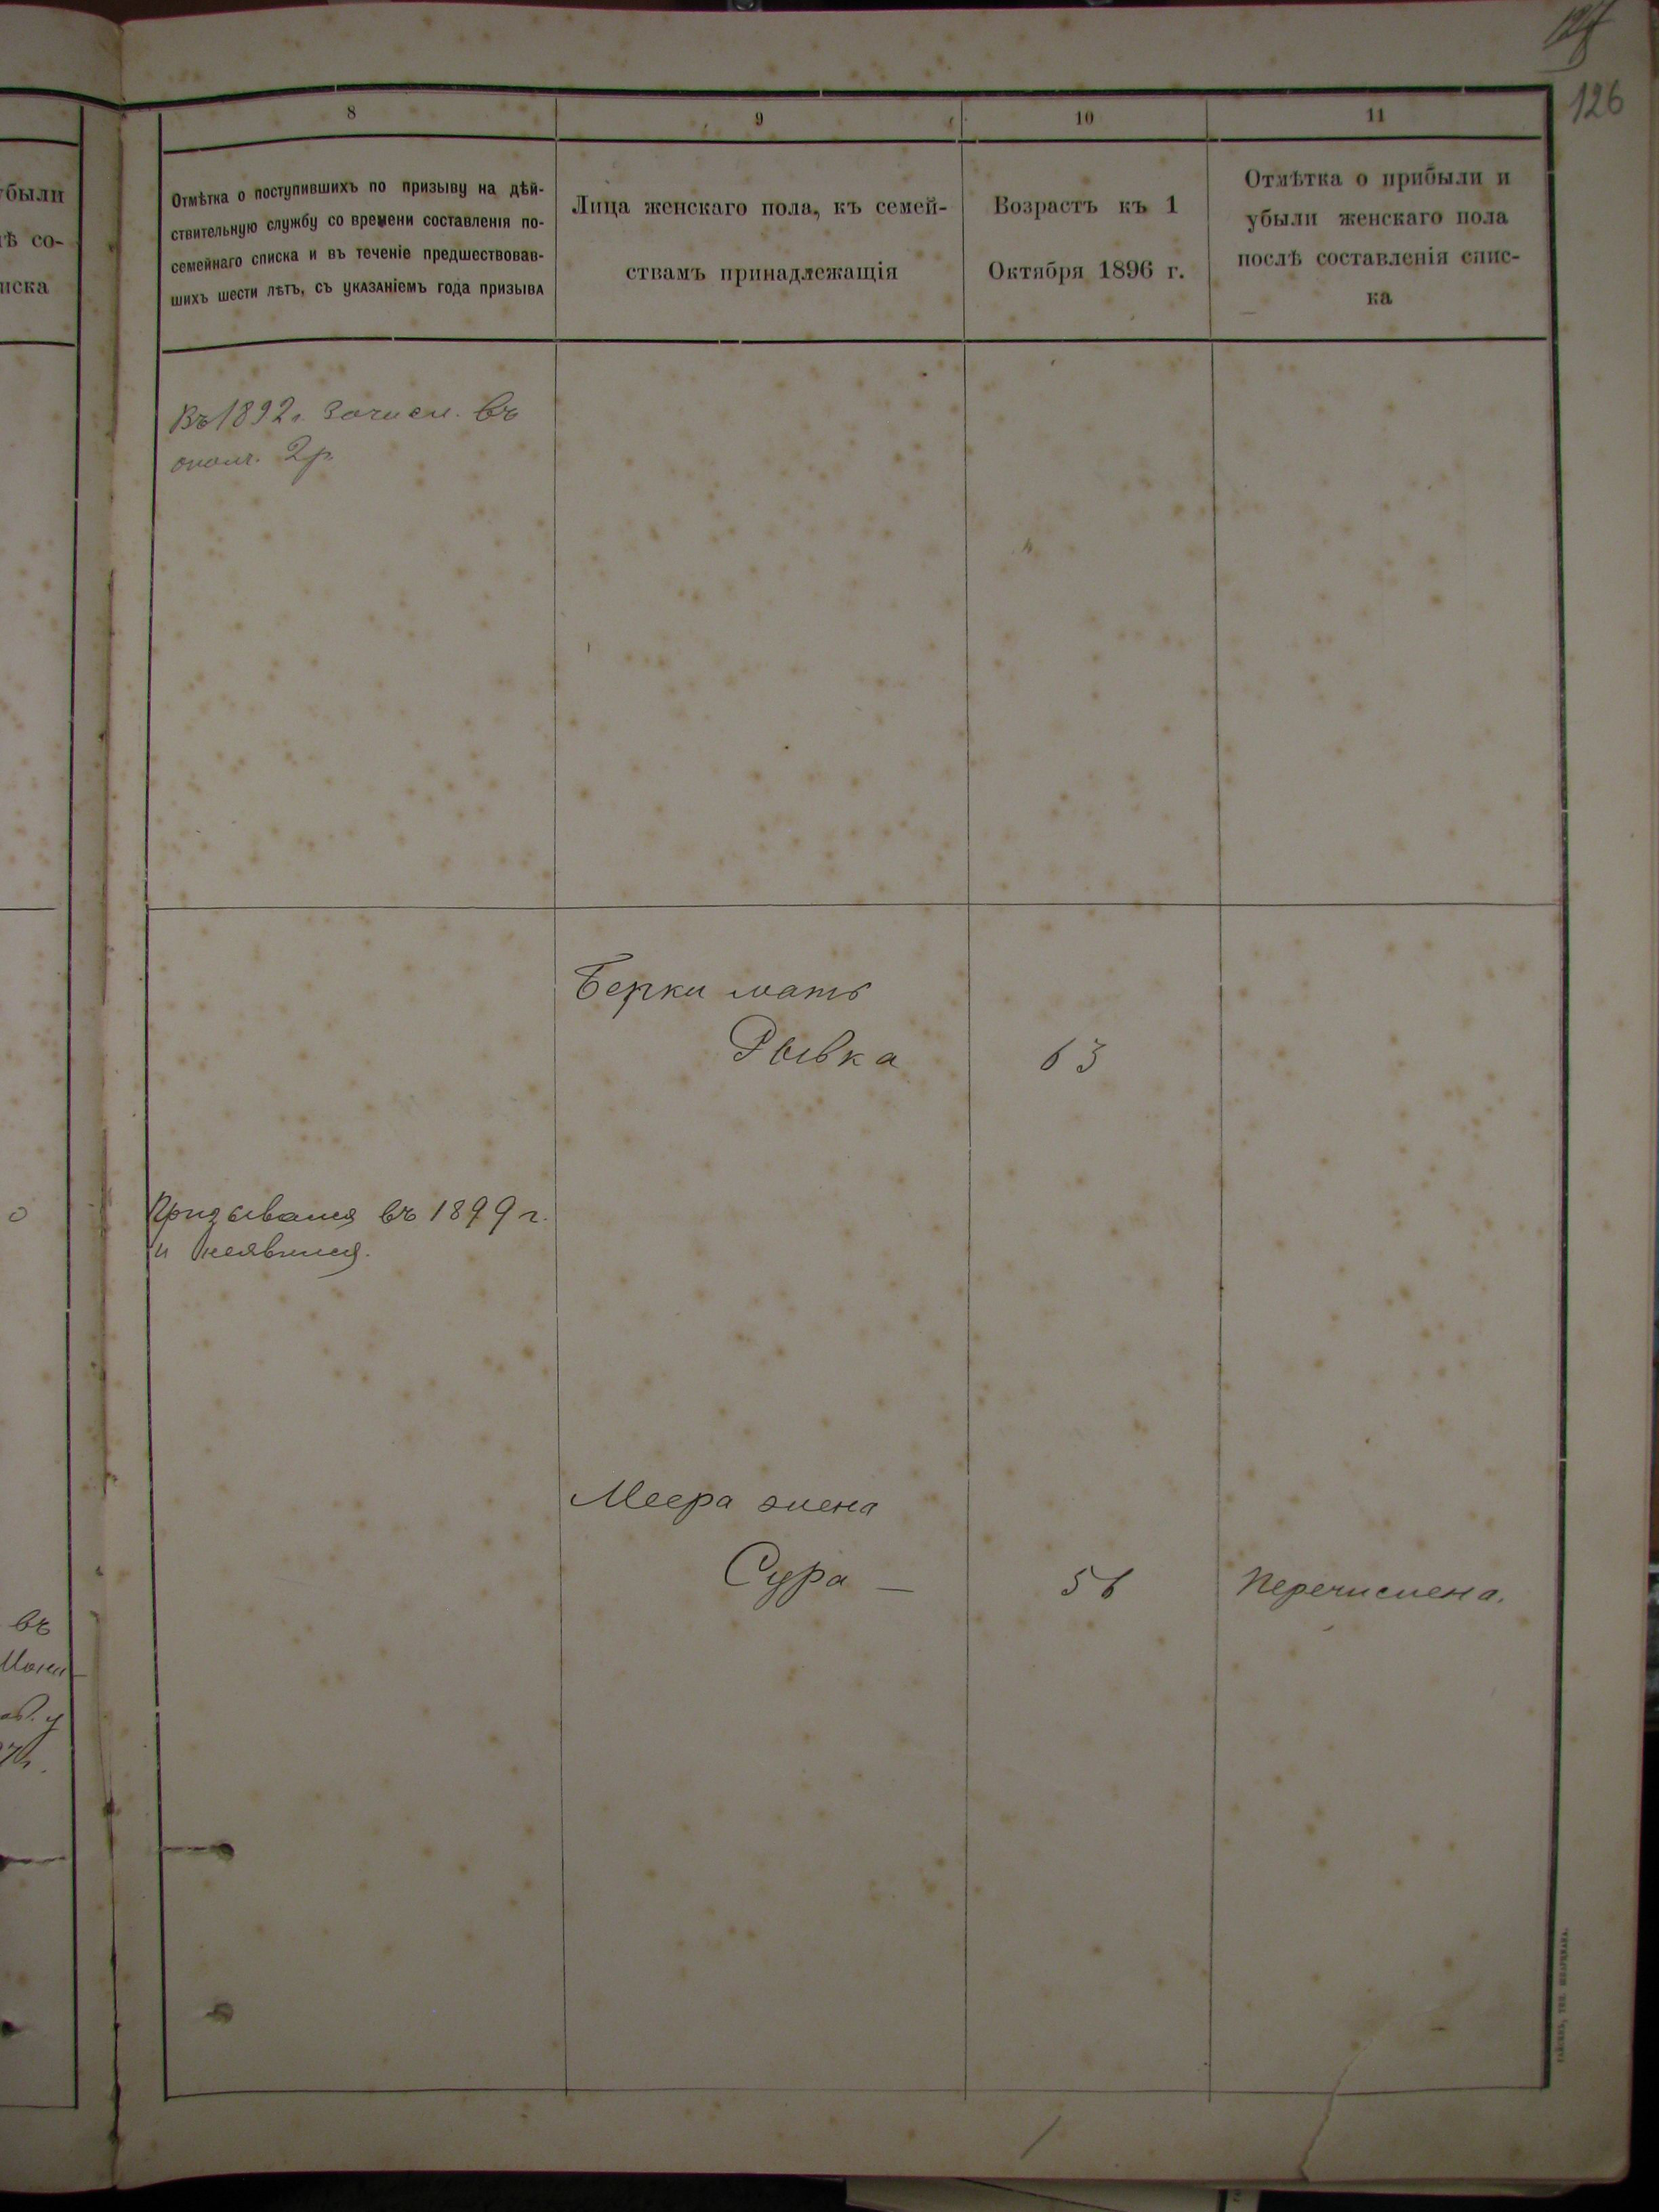 126
убыли
ѣ со-
иска
8
9
10
11
Отмѣтка о поступившихъ по призыву на дѣй-
ствительную службу со времени составленія по-
семейнаго списка и въ теченіе предшествовав-
шихъ шести лѣтъ, съ указаніемъ года призыва
Лица женскаго пола, къ семей-
ствамъ принадлежащія
Возрастъ къ 1
Октября 1896 г.
Отмѣтка о прибыли и
убыли женскаго пола
послѣ составленія спис-
ка
Въ 1892 г. зачисл. въ
ополч. 2 р.
Берки мать
Рывка
63
Призывался въ 1899 г.
и неявился.
Меера жена
Сура —
56
Перечислена.
въ